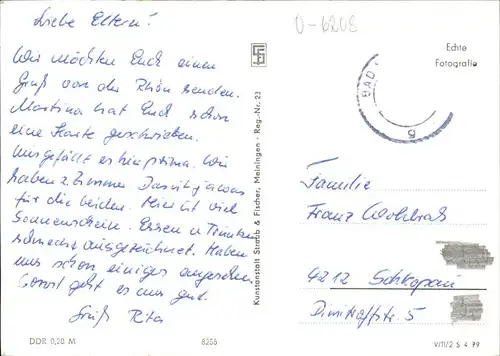 Liebe Eltern!
Wir möchten Euch einen
Gruß von der Rhön senden.
Martina hat Euch schon
eine Karte geschrieben.
Uns gefällt es hier prima. Wir
haben 2 Zimmer
für die beiden. Hier ist viel
Sonnenschein. Essen u. Trinken
schmeckt ausgezeichnet. Haben
uns schon einiges angesehen.
Sonst geht es uns gut.
Gruß Rita
DDR 0,20 M
8255
Kunstanstalt Straub & Fischer, Meiningen - Reg.-Nr. 23
0-6208
Echte
Fotografie
BAD
Familie
Franz
4212 Schkopau
Dimitroffstr. 5
V/11/2 S 4 79